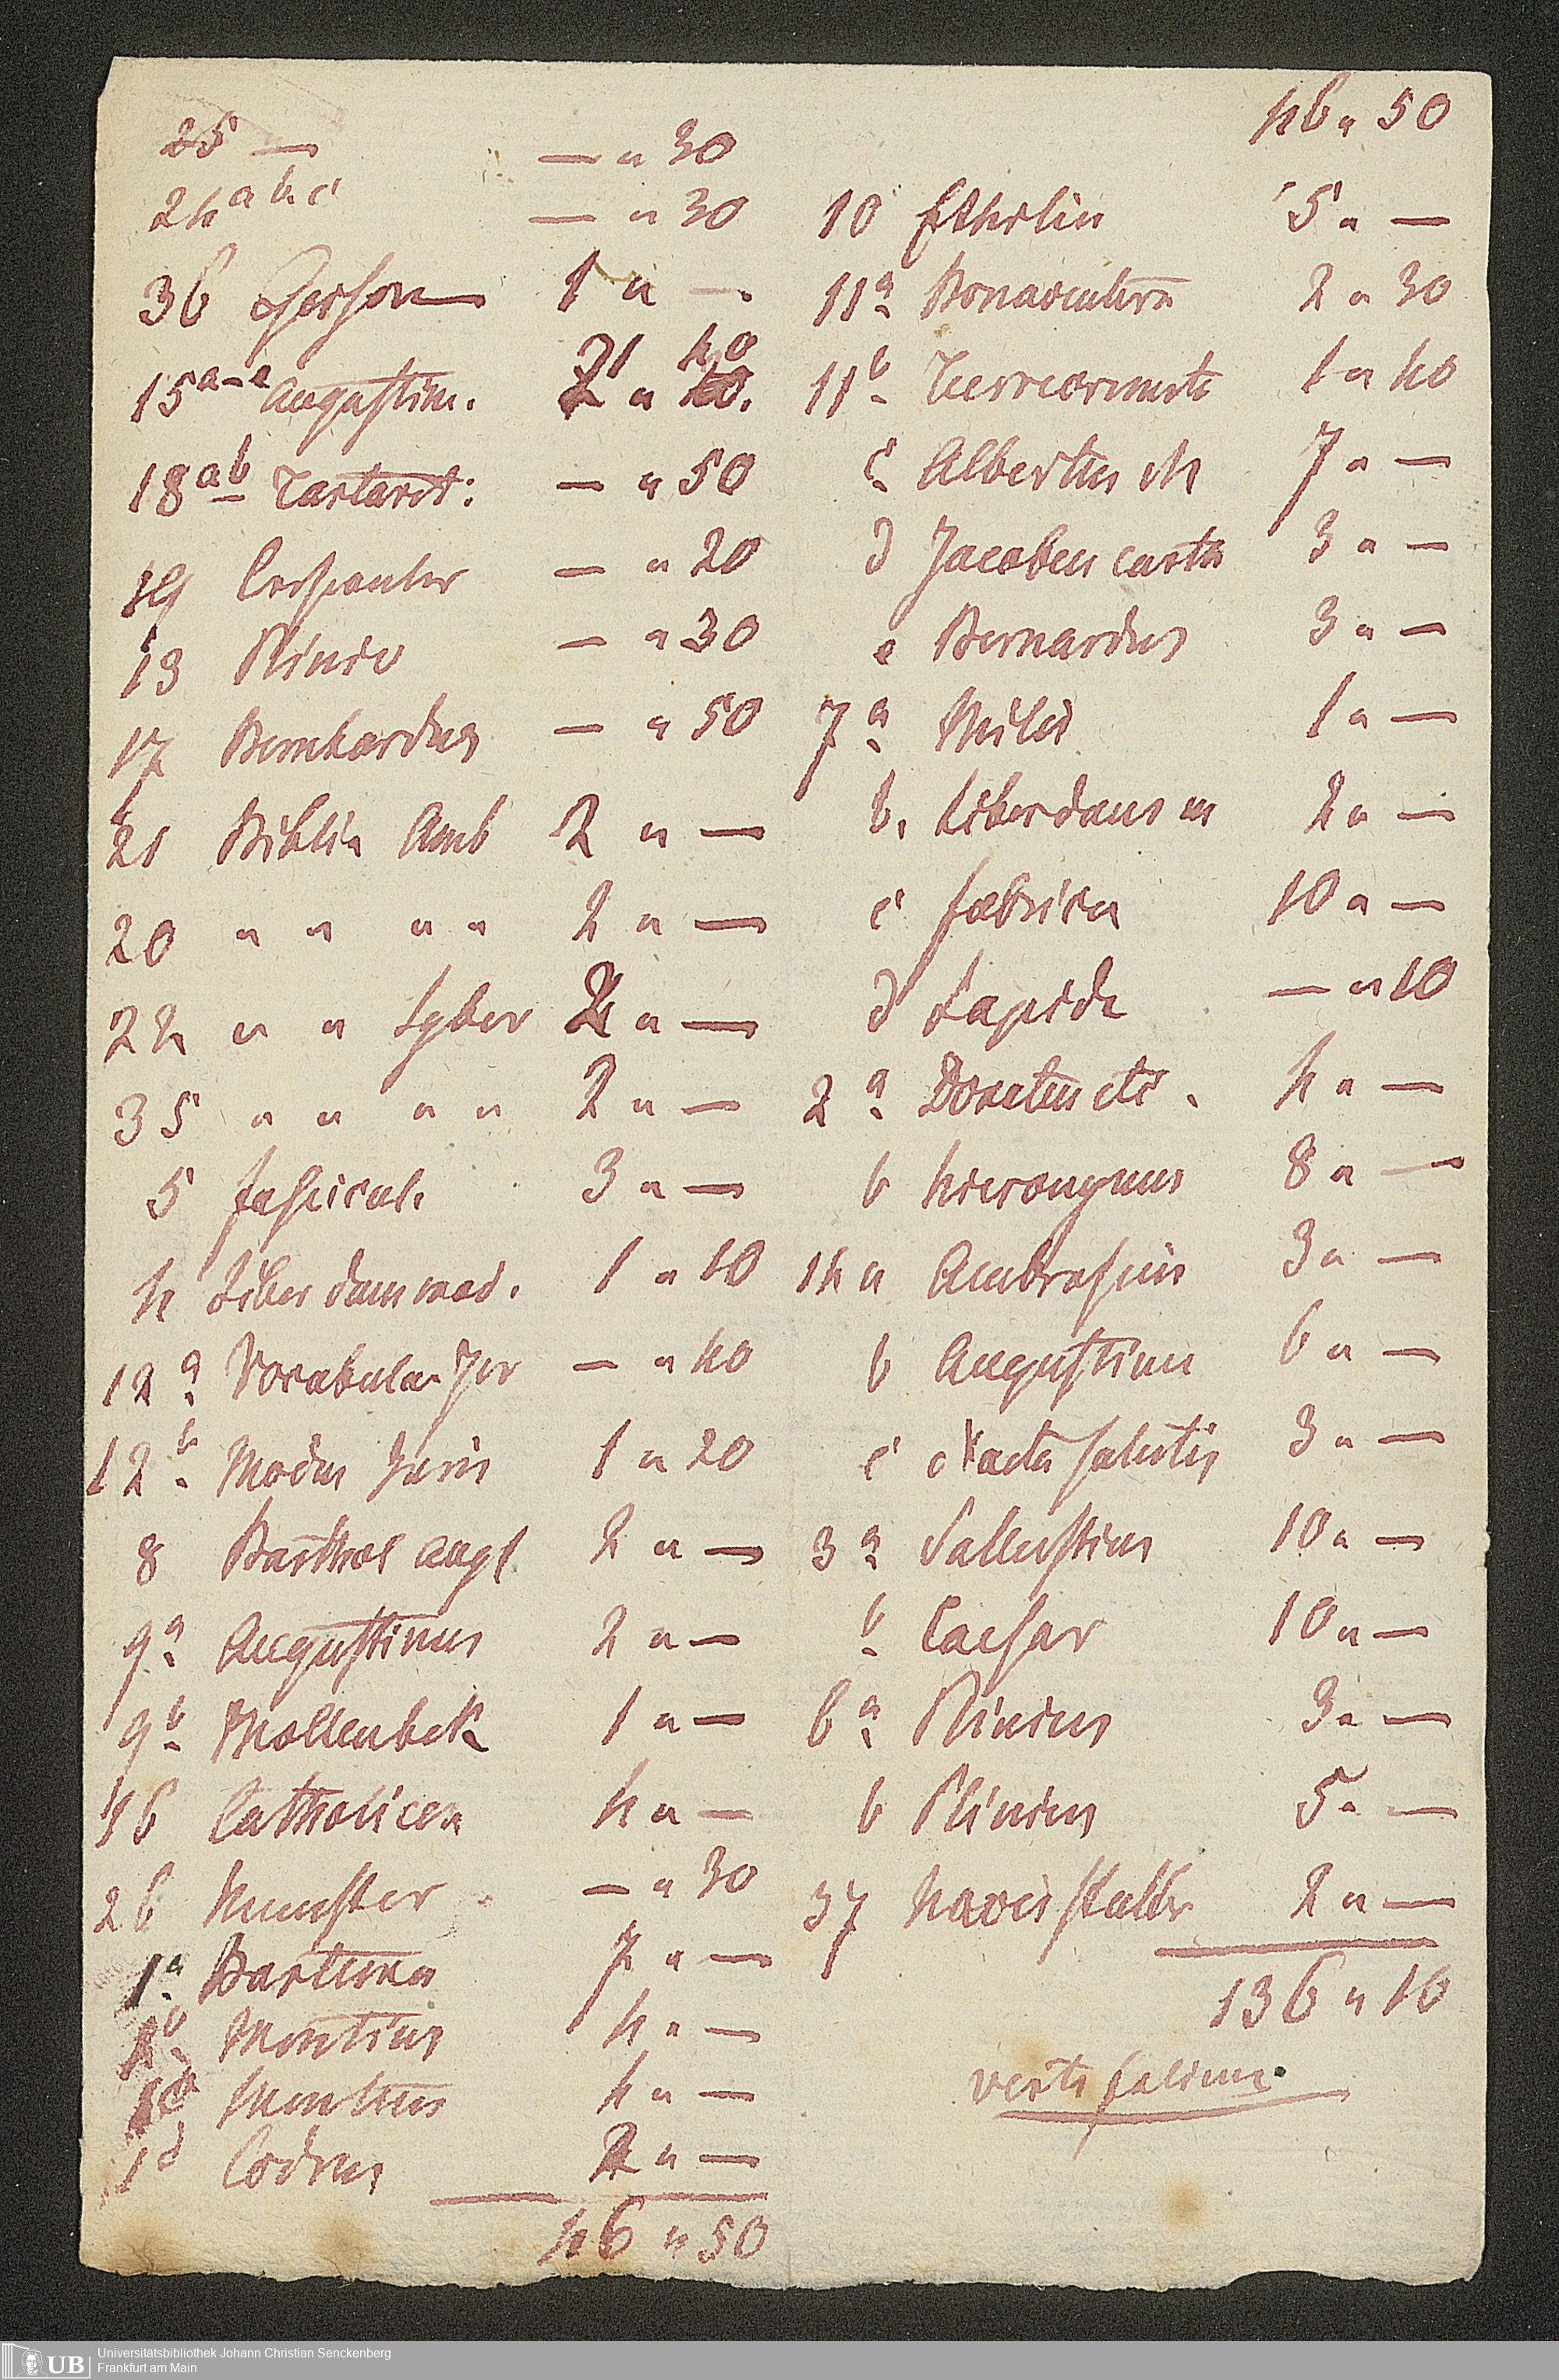 25 — — " 30
24 a b c — " 30
36 Gerson 1 " —.
15 a-e Augustin. 21 " 40.
18 ab Tartaret: — " 50
19 — " 20
13 Plinio — " 30
17 Bernhardus — " 50
21 Biblia Amb 2 " —
20 " " " " 2 " —
22 " " Lyber 2 " —
35 " " " " 2 " —
5 fascicul. 3 " —
4 Liber dans mod. 1 " 10
12 a Vocabular Jur — " 40
12 b Modus Juris 1 " 20
8 Barthol angl 2 " —
9 a Augustinus 2 " —
9 b Mollenbek 1 " —
16 Catholicon 4 " —
26 Munster — " 30
1 a 7 " —
1 b 4 " —
1 c 4 " —
1 d Codrus 2 " —
46 " 50
46 " 50
10 5 " —
11 a Bonaventura 2 " 30
11 b 1 " 40
c Albertus M 7 " —
d Jacobus carth 3 " —
e Bernardus 3 " —
7 a Milis 1 " —
b. Liber dans m 2 " —
c fabrica 10 " —
d Lapide — " 10
2 a Donatus etc. 4 " —
b Hieronymus 8 " —
14 a Ambrosius 3 " —
b Augustinus 6 " —
c salutis 3 " —
3 a Sallustius 10 " —
b Caesar 10 " —
6 a Plinius 3 " —
b Plinius 5 " —
37 Navis stultif 2 " —
136 " 10
verte folium.
Universitätsbibliothek Johann Christian Senckenberg
Frankfurt am Main
UB